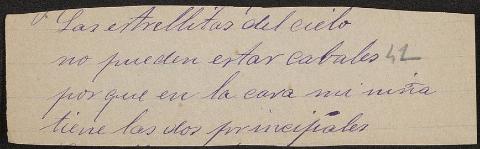 Las estrellitas del cielo
no pueden estar cabales 42
porque en la cara mi niña
tiene las dos principales